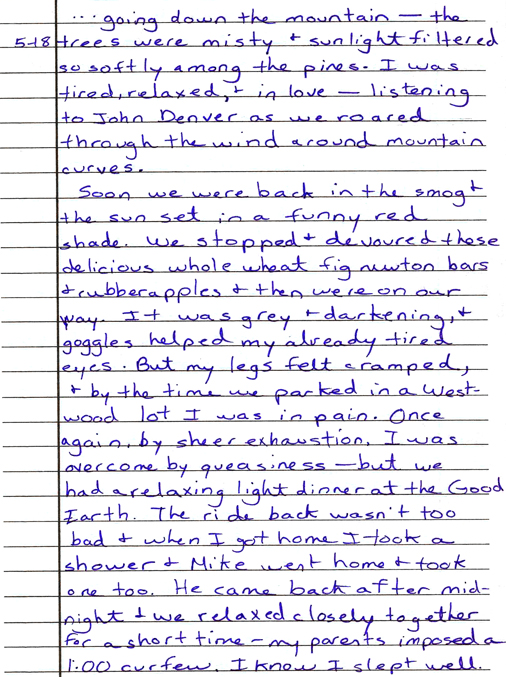 ...going down the mountain — the
5-18 trees were misty & sunlight filtered
so softly among the pines. I was
tired, relaxed, & in love — listening
to John Denver as we roared
through the wind around mountain
curves.
Soon we were back in the smog &
the sun set in a funny red
shade. We stopped & devoured those
delicious whole wheat fig newton bars
& rubber apples & then were on our
way. It was grey & darkening, &
goggles helped my already tired
eyes. But my legs felt cramped,
& by the time we parked in a West-
wood lot I was in pain. Once
again, by sheer exhaustion, I was
overcome by queasiness — but we
had a relaxing light dinner at the Good
Earth. The ride back wasn't too
bad & when I got home I took a
shower & Mike went home & took
one too. He came back after mid-
night & we relaxed closely together
for a short time — my parents imposed a
1:00 curfew. I know I slept well.